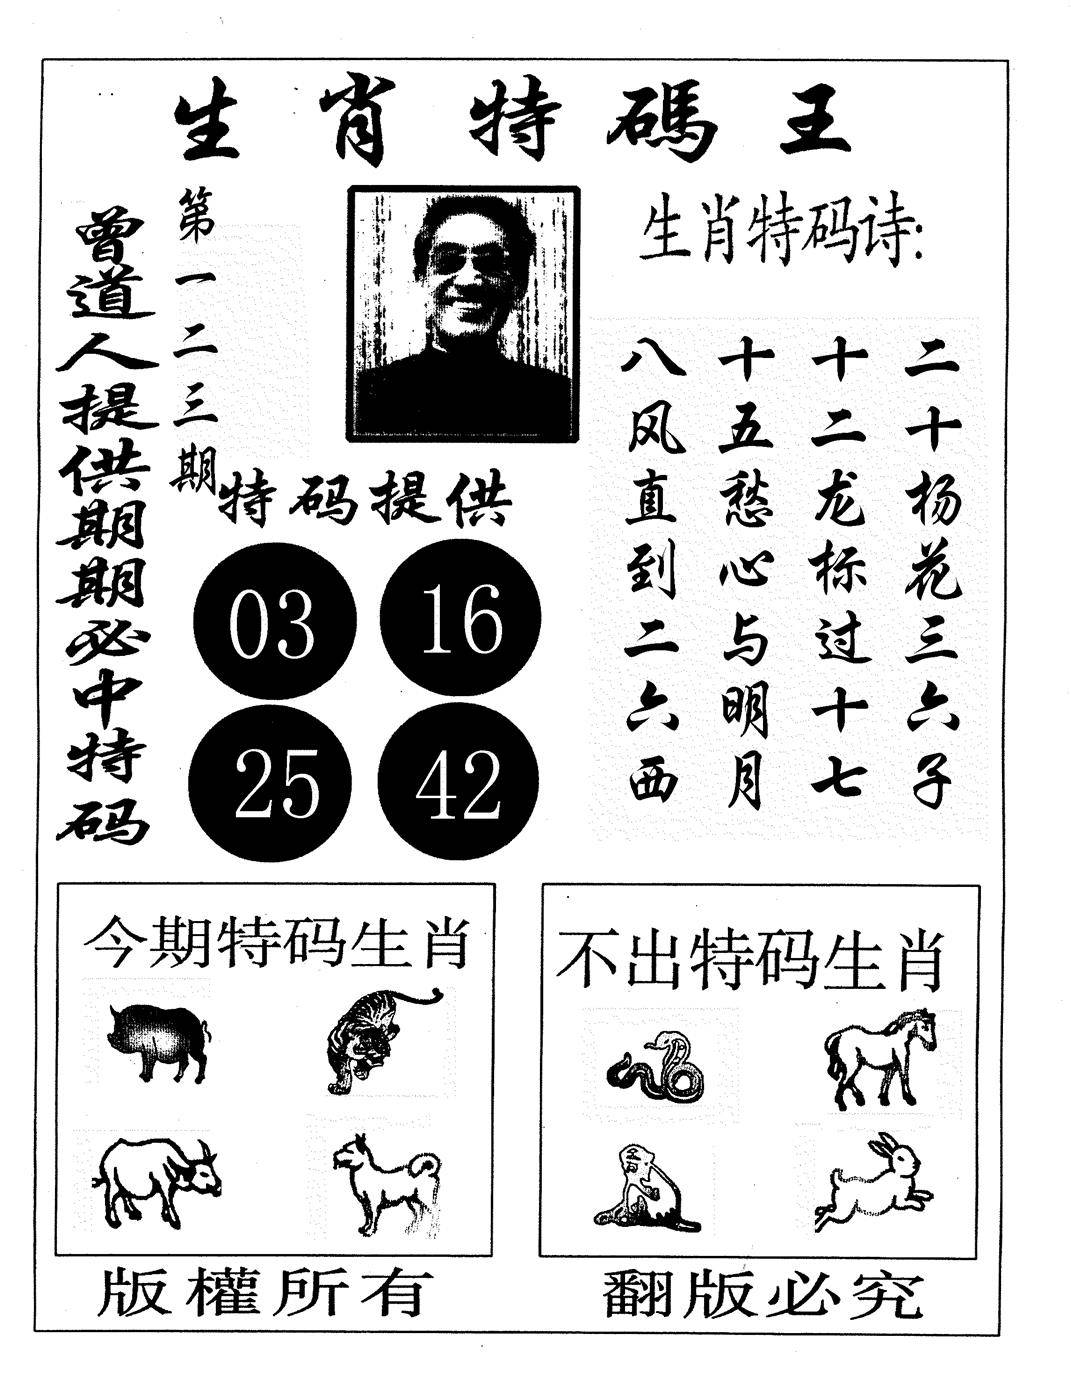 生肖特碼王
曾道人提供期期必中特码
第一二三期
生肖特码诗:
二十杨花三六子
十二龙标过十七
十五愁心与明月
八风直到二六西
特码提供
03 16
25 42
今期特码生肖
不出特码生肖
版權所有
翻版必究